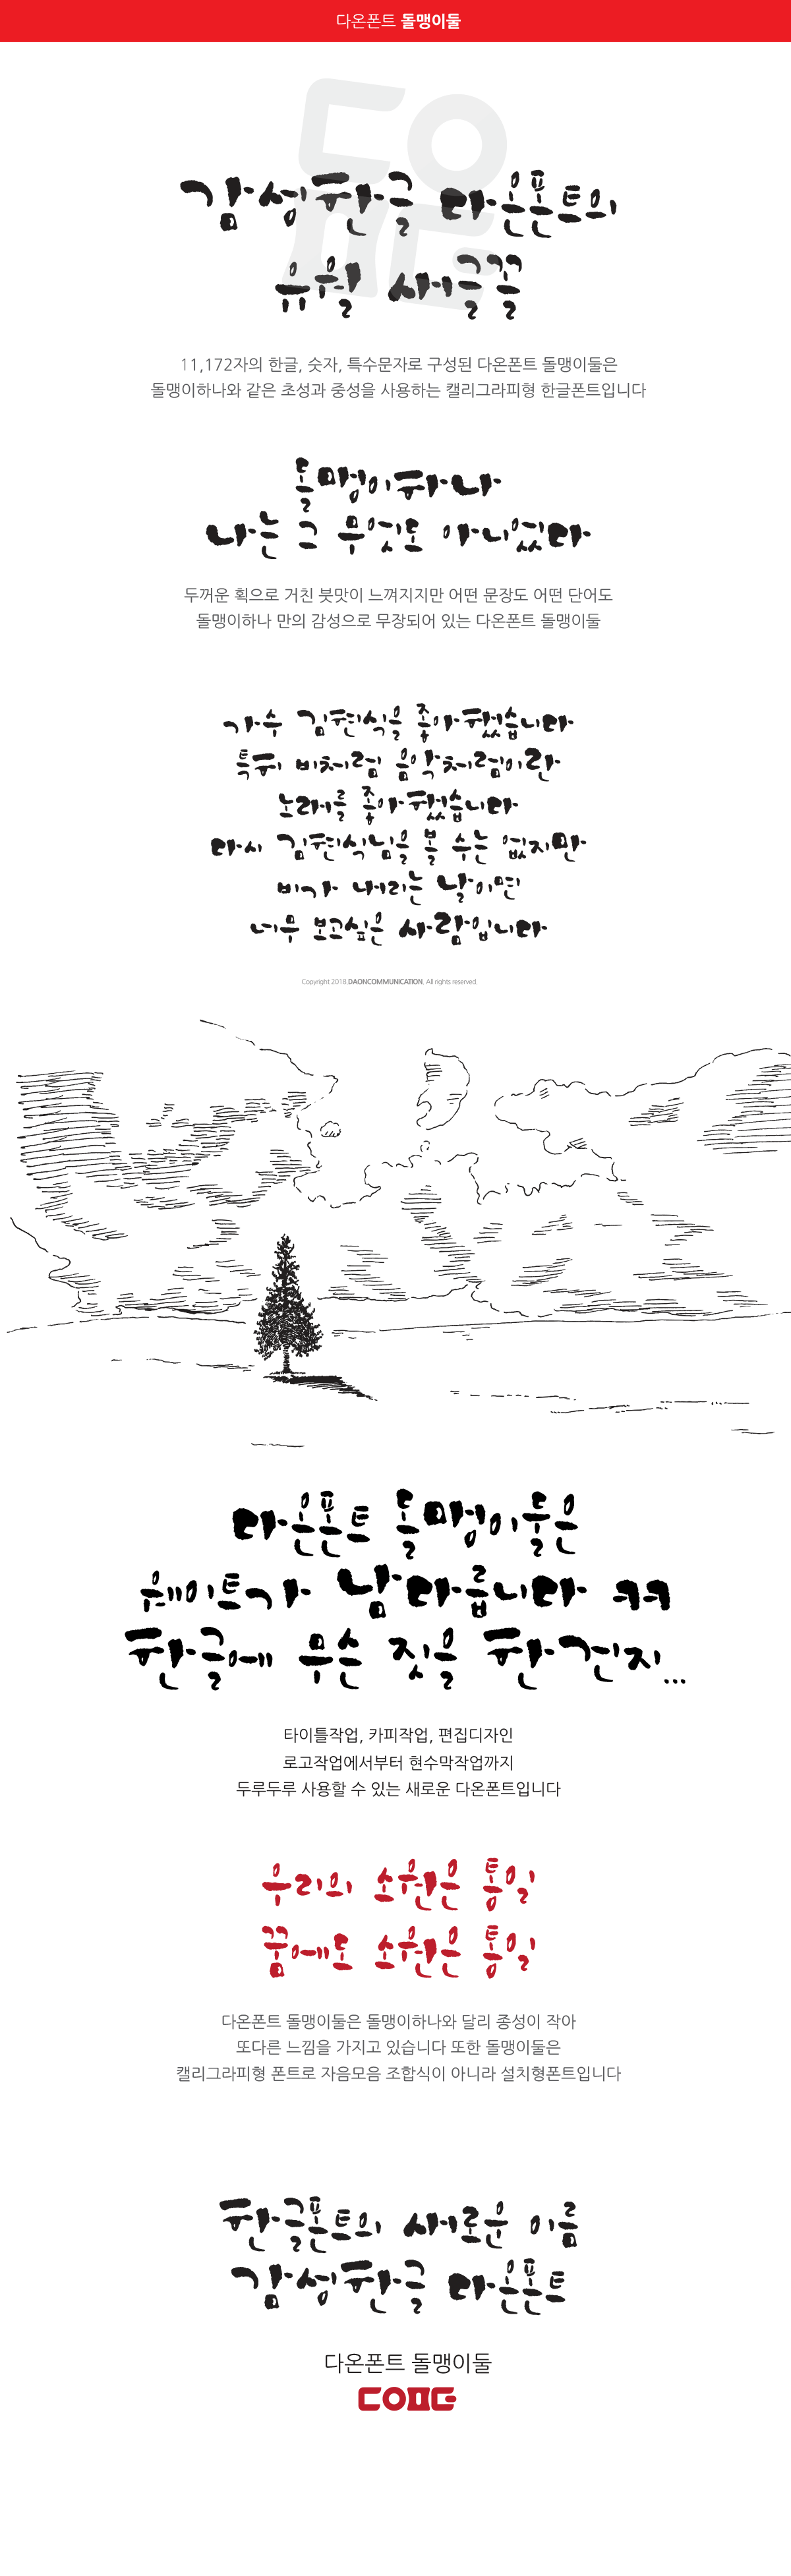 다온폰트 돌맹이둘
감성한글 다온폰트의
유월 새글꼴
11,172자의 한글, 숫자, 특수문자로 구성된 다온폰트 돌맹이둘은
돌맹이하나와 같은 초성과 중성을 사용하는 캘리그라피형 한글폰트입니다
돌맹이하나
나는 그 무엇도 아니었다
두꺼운 획으로 거친 붓맛이 느껴지지만 어떤 문장도 어떤 단어도
돌맹이하나 만의 감성으로 무장되어 있는 다온폰트 돌맹이둘
가수 김현식을 좋아했습니다
특히 비처럼 음악처럼이란
노래를 좋아했습니다
다시 김현식님을 볼 수는 없지만
비가 내리는 날이면
너무 보고싶은 사람입니다
Copyright 2018 DAONCOMMUNICATION. All rights reserved.
다온폰트 돌맹이둘은
웨이트가 남다릅니다 ㅋㅋ
한글에 무슨 짓을 한건지...
타이틀작업, 카피작업, 편집디자인
로고작업에서부터 현수막작업까지
두루두루 사용할 수 있는 새로운 다온폰트입니다
우리의 소원은 통일
꿈에도 소원은 통일
다온폰트 돌맹이둘은 돌맹이하나와 달리 종성이 작아
또다른 느낌을 가지고 있습니다 또한 돌맹이둘은
캘리그라피형 폰트로 자음모음 조합식이 아니라 설치형폰트입니다
한글폰트의 새로운 이름
감성한글 다온폰트
다온폰트 돌맹이둘